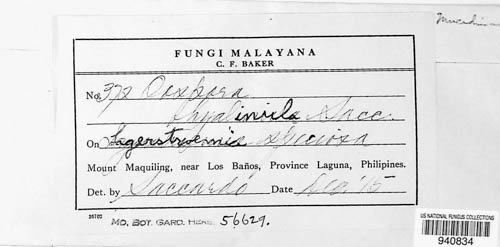 Mucedin
FUNGI MALAYANA
C. F. BAKER
No. 372 Oospora
hyalinula Sacc.
On Lagerstroemia speciosa
Mount Maquiling, near Los Baños, Province Laguna, Philipines.
Det. by Saccardo Date Dec. '15
26702
MO. BOT. GARD. HERB. 56629.
US NATIONAL FUNGUS COLLECTIONS
940834